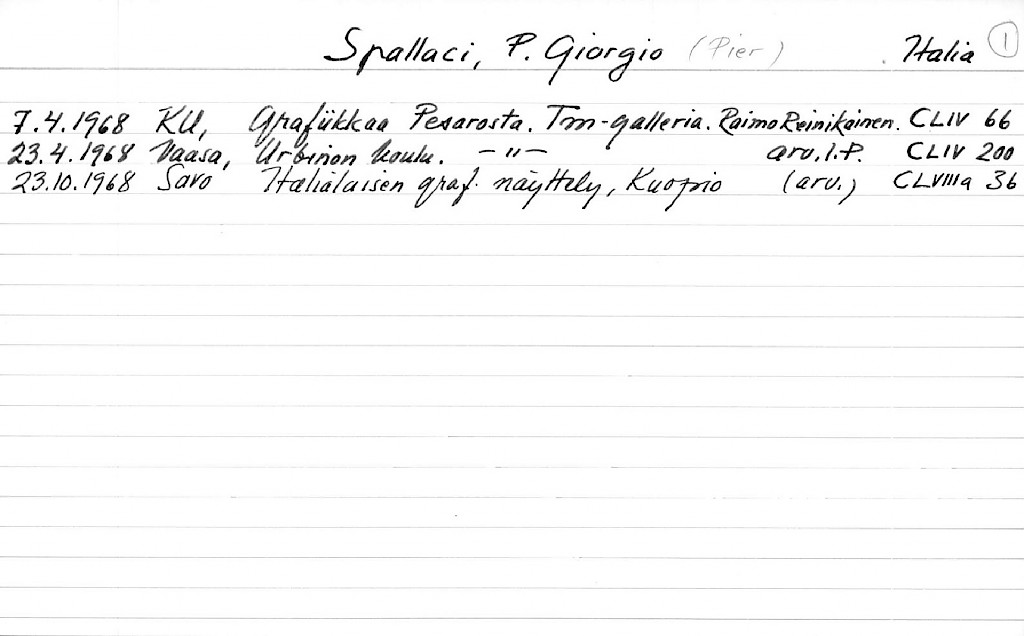 Spallaci, P. Giorgio (Pier) Italia 1
7.4.1968 KU, Grafiikkaa Pesarosta. Tm-galleria. Raimo Reinikainen. CLIV 66
23.4.1968 Vaasa, Urbinon koulu. -"- arv. I.P. CLIV 200
23.10.1968 Savo Italialaisen graf. näyttely, Kuopio (arv.) CLVIIIa 36